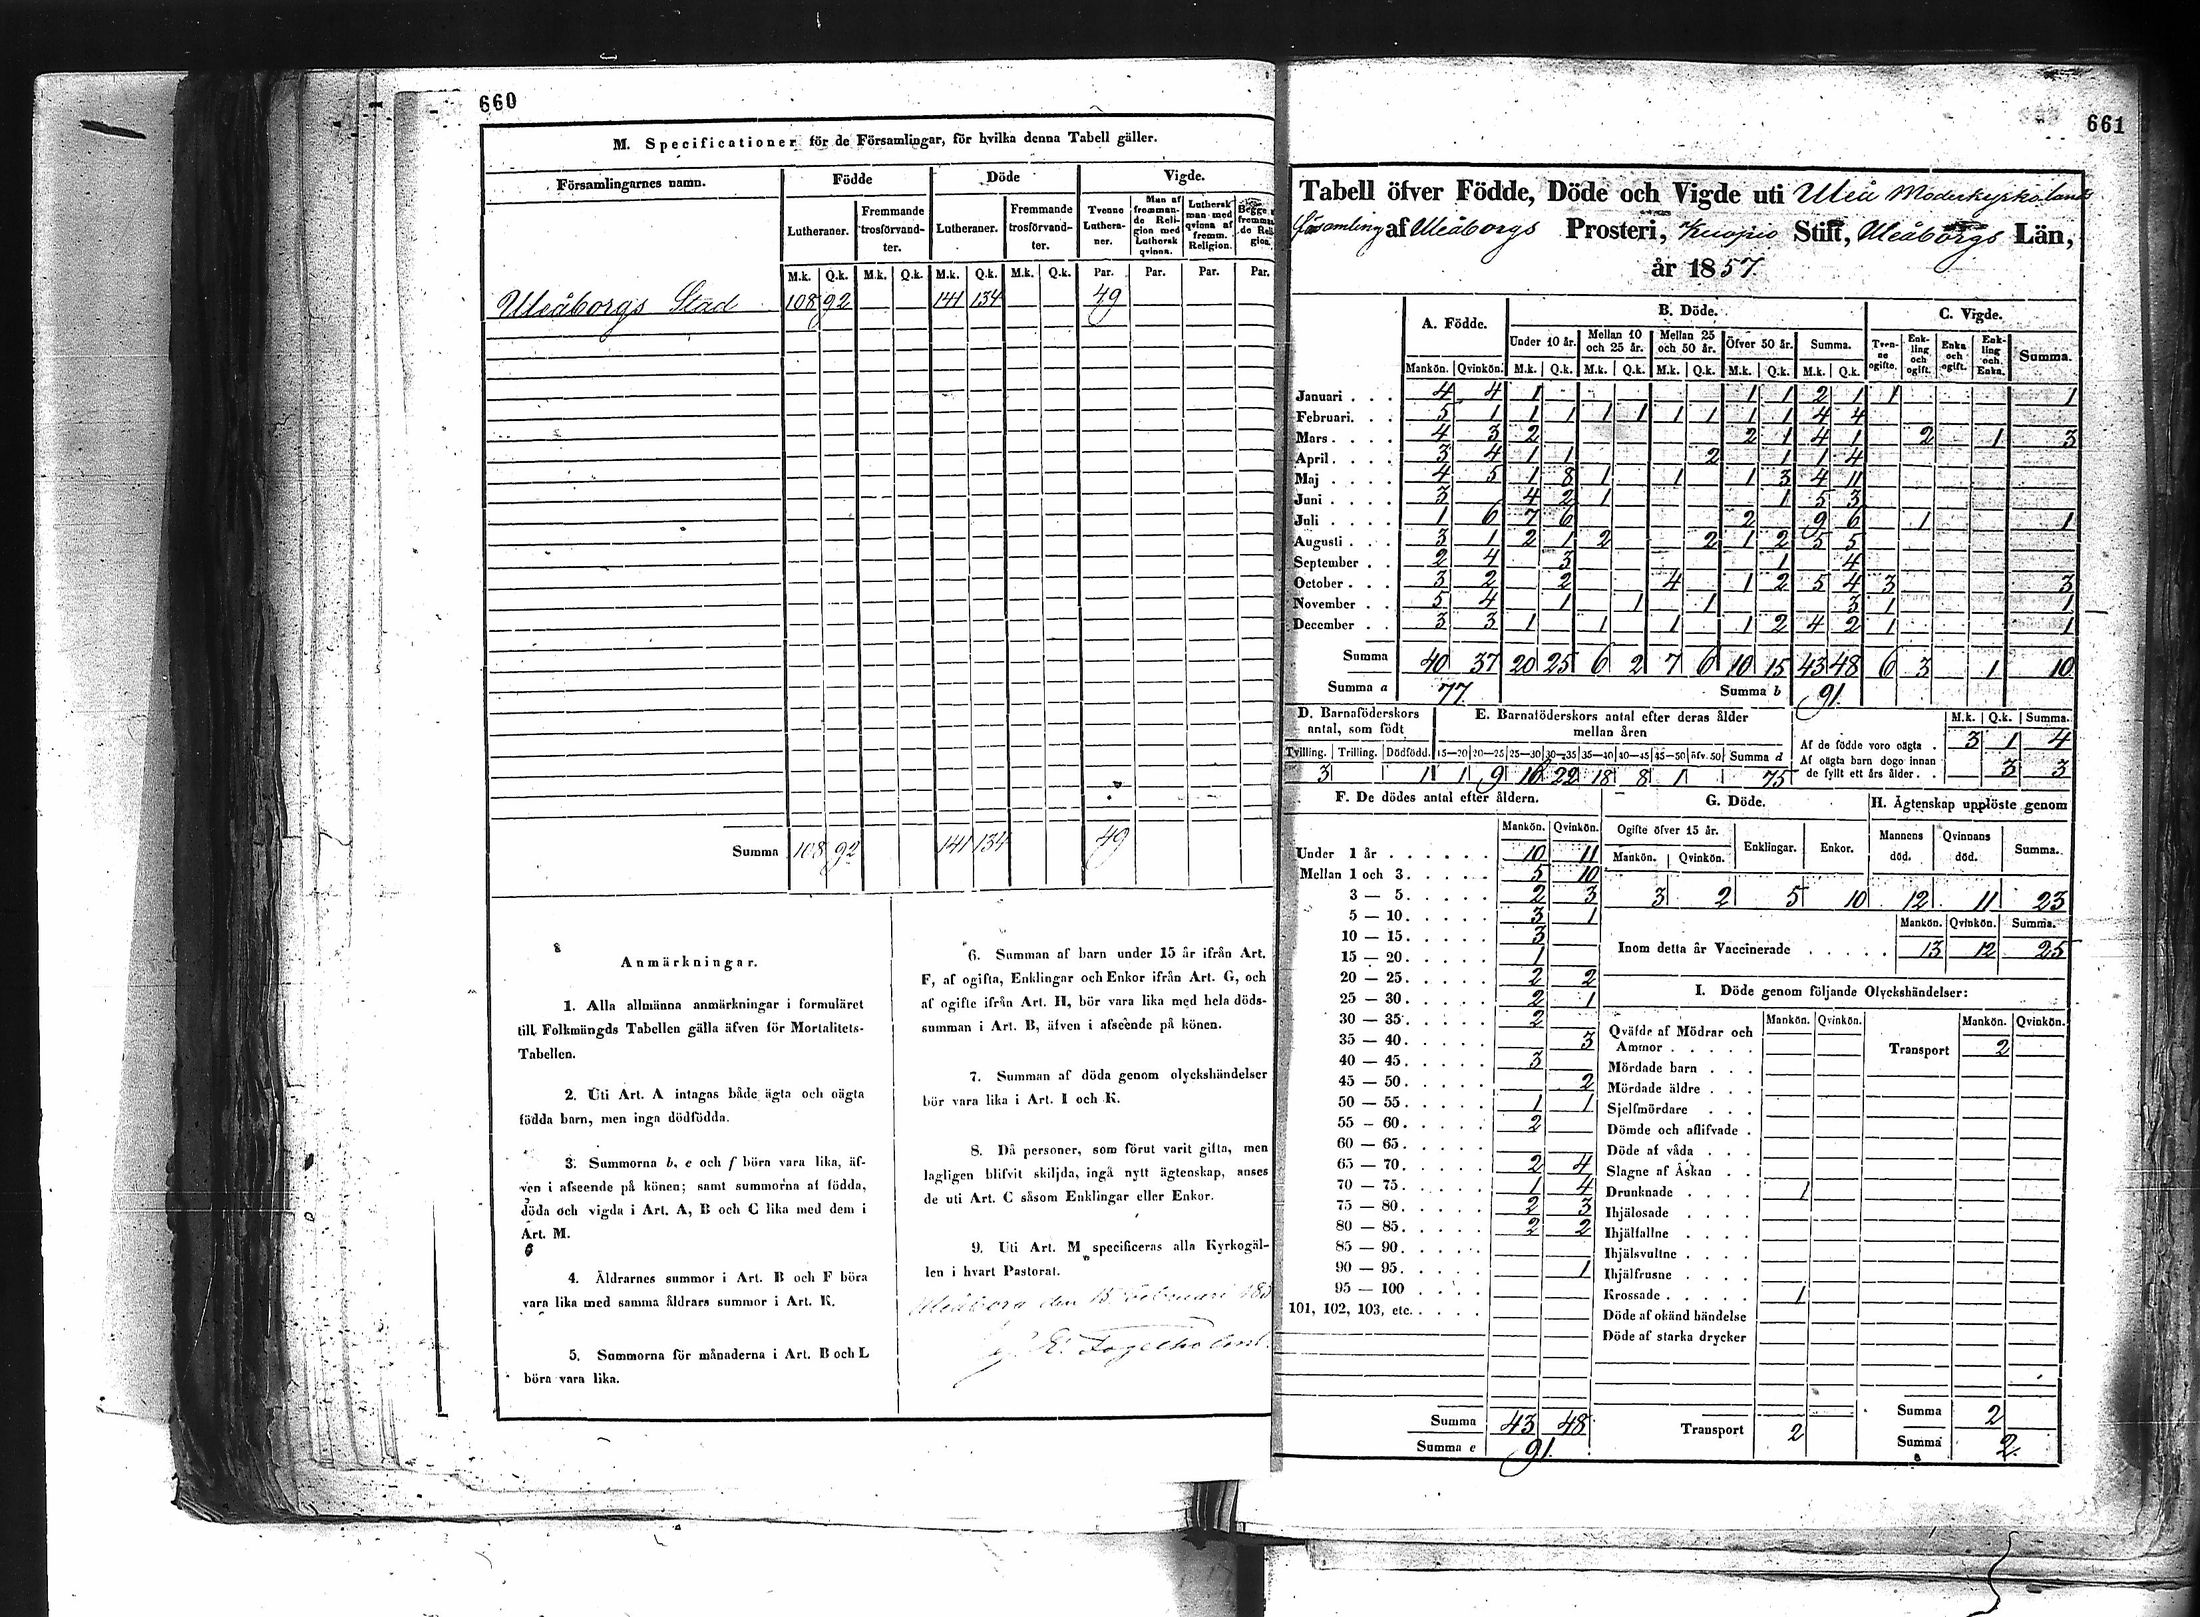 660
M. Specificationer för de Församlingar, för hvilka denna Tabell gäller.
Församlingarnes namn. Födde Döde Vigde.
Lutheraner. Fremmande trosförvandter. Lutheraner. Fremmande trosförvandter. Tvenne Lutheraner. Man af fremmande Religion med Luthersk qvinna. Luthersk man med qvinna af fremm. Religion.
M.k. Q.k. M.k. Q.k. M.k. Q.k. M.k. Q.k. Par. Par. Par. Par.
Uleåborgs Stad 108 92 141 134 49
Summa 108 92 141 134 49
Anmärkningar.
1. Alla allmänna anmärkningar i formuläret
till Folkmängds Tabellen gälla äfven för Mortalitets-
Tabellen.
2. Uti Art. A intagas både ägta och oägta
födda barn, men inga dödfödda.
3. Summorna b, e och f böra vara lika, äf-
ven i afseende på könen; samt summorna af födda,
döda och vigda i Art. A, B och C lika med dem i
Art. M.
4. Åldrarnes summor i Art. B och F böra
vara lika med samma åldrars summor i Art. K.
5. Summorna för månaderna i Art. B och L
böra vara lika.
6. Summan af barn under 15 år ifrån Art.
F, af ogifta, Enklingar och Enkor ifrån Art. G, och
af ogifte ifrån Art. H, bör vara lika med hela döds-
summan i Art. B, äfven i afseende på könen.
7. Summan af döda genom olyckshändelser
bör vara lika i Art. I och K.
8. Då personer, som förut varit gifta, men
lagligen blifvit skiljda, ingå nytt ägtenskap, anses
de uti Art. C såsom Enklingar eller Enkor.
9. Uti Art. M specificeras alla Kyrkogäl-
len i hvart Pastorat.
Uleåborg den 15 Februari
661
Tabell öfver Födde, Döde och Vigde uti Uleå Moderkyrko lands
församling af Uleåborgs Prosteri, Kuopio Stift, Uleåborgs Län,
år 1857.
A. Födde. B. Döde. C. Vigde.
Under 10 år. Mellan 10 och 25 år. Mellan 25 och 50 år. Öfver 50 år. Summa. Tvenne ogifte. Enkling och ogift. Enka och ogift. Enkling och Enka. Summa.
Mankön. Qvinkön. M.k. Q.k. M.k. Q.k. M.k. Q.k. M.k. Q.k. M.k. Q.k.
Januari 4 4 1 1 1 2 1 1 1
Februari. 5 1 1 1 1 1 1 1 1 1 4 4
Mars 4 3 2 2 1 4 1 2 1 3
April 3 4 1 1 2 1 1 4
Maj 4 5 1 8 1 1 1 3 4 11
Juni 3 4 2 1 1 5 3
Juli 1 6 7 6 2 9 6 1 1
Augusti 3 1 2 1 2 2 1 2 5 5
September 2 4 3 1 4
October 3 2 2 4 1 2 5 4 3 3
November 5 4 1 1 1 3 1 1
December 3 3 1 1 1 1 2 4 2 1 1
Summa 40 37 20 25 6 2 7 6 10 15 43 48 6 3 1 10
Summa a 77. Summa b 91.
D. Barnaföderskors antal, som födt
Tvilling. Trilling. Dödfödd.
3 1
E. Barnaföderskors antal efter deras ålder mellan åren
15—20 20—25 25—30 30—35 35—40 40—45 45—50 öfv. 50 Summa d
1 9 16 22 18 8 1 75
M.k. Q.k. Summa.
Af de födde voro oägta 3 1 4
Af oägta barn dogo innan
de fyllt ett års ålder 3 3
F. De dödes antal efter åldern.
Mankön. Qvinkön.
Under 1 år 10 11
Mellan 1 och 3 5 10
3 — 5 2 3
5 — 10 3 1
10 — 15 3
15 — 20 1
20 — 25 2 2
25 — 30 2 1
30 — 35 2
35 — 40 3
40 — 45 3
45 — 50 2
50 — 55 1 1
55 — 60 2
60 — 65
65 — 70 2 4
70 — 75 1 4
75 — 80 2 3
80 — 85 2 2
85 — 90
90 — 95 1
95 — 100
101, 102, 103, etc.
Summa 43 48
Summa e 91.
G. Döde.
Ogifte öfver 15 år. Enklingar. Enkor.
Mankön. Qvinkön.
3 2 5 10
H. Ägtenskap upplöste genom
Mannens död. Qvinnans död. Summa.
12 11 23
Mankön. Qvinkön. Summa.
Inom detta år Vaccinerade 13 12 25
I. Döde genom följande Olyckshändelser:
Mankön. Qvinkön. Mankön. Qvinkön.
Qväfde af Mödrar och
Ammor
Mördade barn
Mördade äldre
Sjelfmördare
Dömde och aflifvade
Döde af våda
Slagne af Åskan
Drunknade 1
Ihjälosade
Ihjälfallne
Ihjälsvultne
Ihjälfrusne
Krossade 1
Döde af okänd händelse
Döde af starka drycker
Transport 2
Transport 2
Summa 2
Summa 2.